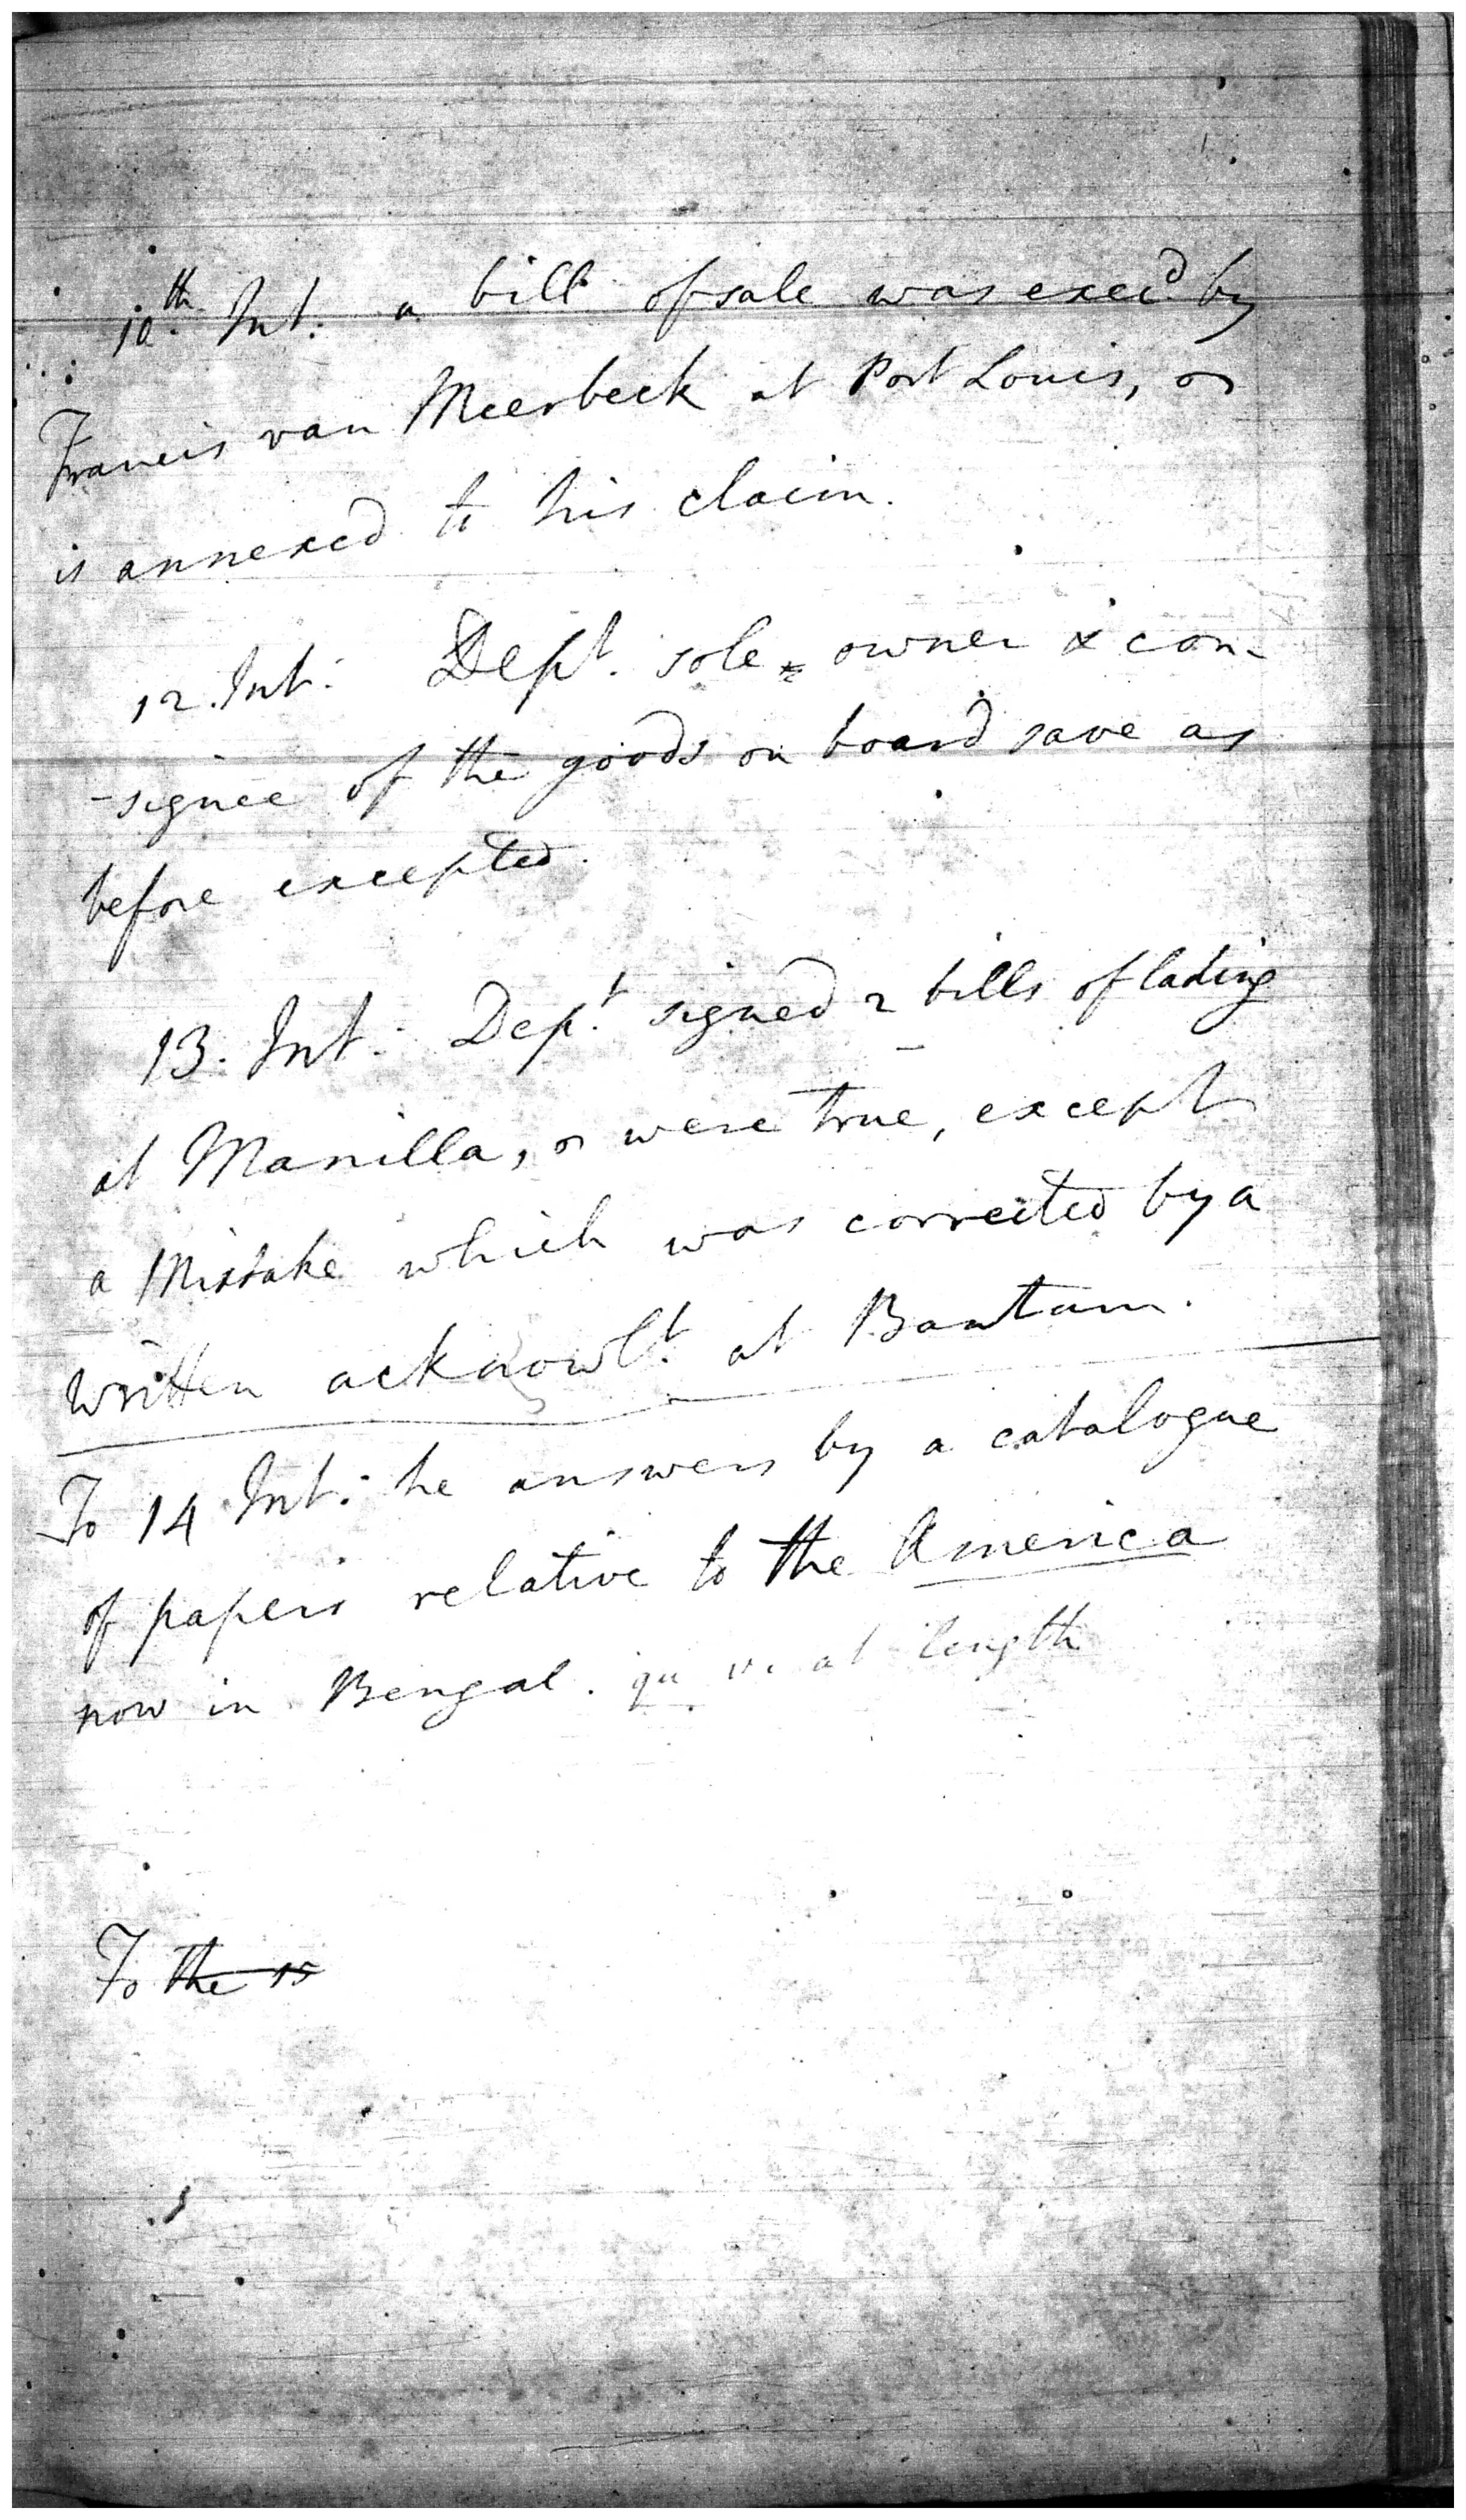 10th Int: a bill of sale was exec'd by
Francis van Meerbeck at Port Louis, or
is annexed to his claim.
12. Int: Dept. sole owner & con-
-signee of the goods on board save as
before excepted.
13. Int: Dept. signed 2 bills of lading
at Manilla, or were true, except
a Mistake which was corrected by a
written acknowlt. at Bantam.
To 14 Int: he answers by a catalogue
of papers relative to the America
now in Bengal. qu v. at length
To the 15